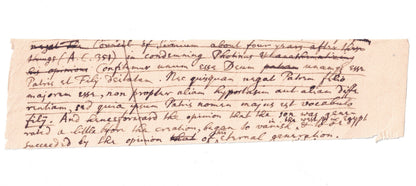 Council of Sirmium about four years after these
things (A.C. 351) in condemning Photinus
his opinions confirmed unum esse Deum unamq esse
Patris et Filij Deitatem. Nec quisquam negat Patrem filio
majorem esse, non propter aliam hypostasin aut aliam diffe
rentiam, sed quia ipsum Patris nomen majus est vocabulo
filij. And henceforward the opinion that the son was gene
rated a little before the creation, began to vanish, in the west & Egypt
succeeded by the opinion that of his eternal generation.